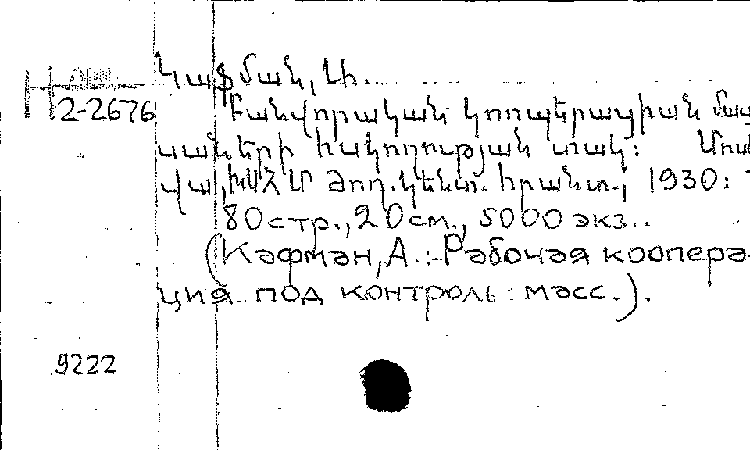 Կաֆման, Ա.
2-2676
Բանվորական կոոպերացիան մաս
սաների հսկողության տակ: Մոսկ
վա, ԽՍՀՄ ժող. կենտ. հրատ., 1930:
80 стр., 20 см., 5000 экз..
(Кафман, А.: Рабочая коопера-
ция под контроль масс.).
9222